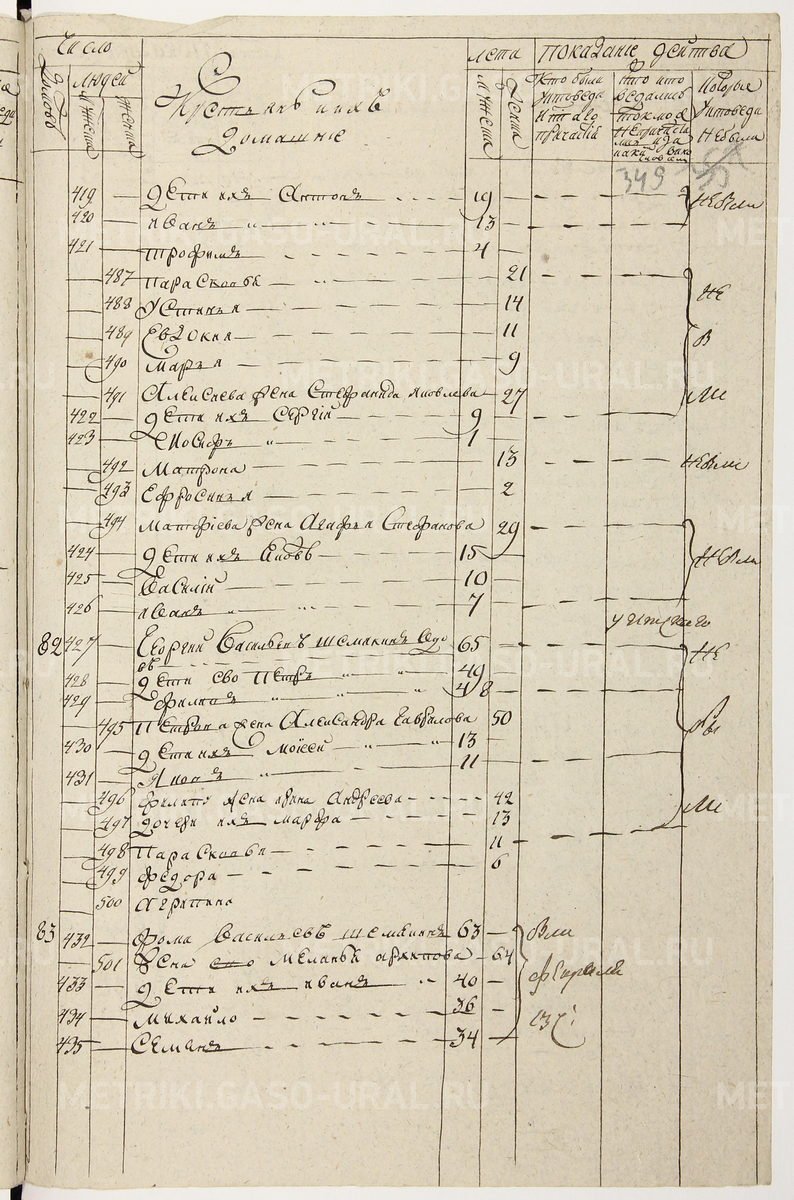 Число
Людей
лета
показание действа
Дворов
Мужеска
Женска
Крестьяне и ихъ
Домашние
Мужеска
Женска
Кто были
Исповеда
и
Которые
Исповеди
Небыли
349
419 Дети ихъ Антонъ 19 небыли
420 Иванъ 13
421 Трофимъ 4
487 Парасковья 21
488 Устинья 14 не
489 Евдокия 11 бы
490 Марья 9
491 Алексиева жена Степанида Яковлева 27 ли
422 Дети ихъ Сергій 9
423 1
492 Матрона 13 небыли
493 Ефросинья 2
494 жена Стефанова 29
424 Дети ихъ Яковъ 15 небыли
425 Василій 10
426 Иванъ 7
82 427 Георгий Васильевъ Шемякинъ 65 не
428 Дети ево Петръ 49
429 Филипъ 48
495 Петрова жена Александра Гаврилова 50 бы
430 Дети ихъ Моисей 13
431 Яковъ 11
496 Филипа жена Ирина Андреева 42 ли
497 Дочери ихъ Марфа 13
498 Парасковья 11
499 Федора 6
500 Агрипина
83 432 Фома Васильевъ Шемякинъ 63 были
501 Жена ево Меланья Архипова 64
433 Дети ихъ Иванъ 40 февраля
434 Михайло 36
435 Семенъ 34
METRIKI.GASO-URAL.RU